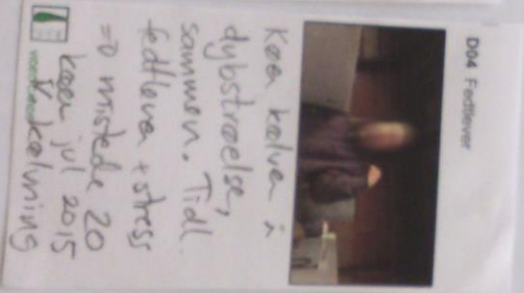 D04 Fedtlever
Køer kælver i
dybstrøelse,
sammen. Tidl.
fedtlever + stress
=> mistede 20
køer jul 2015
v kælvning